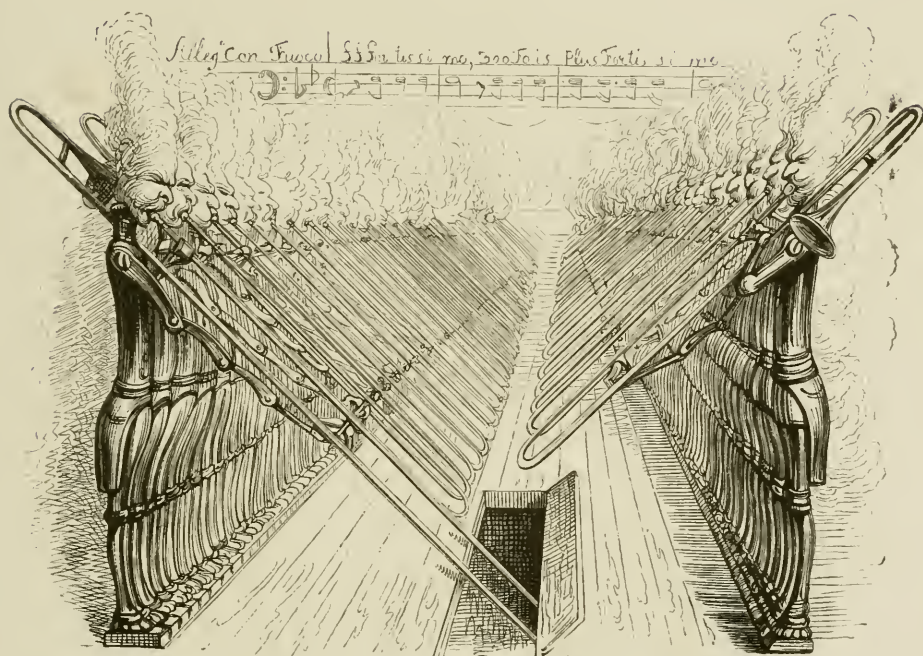 Alleg° Con Fuoco fff For tessi mo, 300 Fois Plus Forti si mo